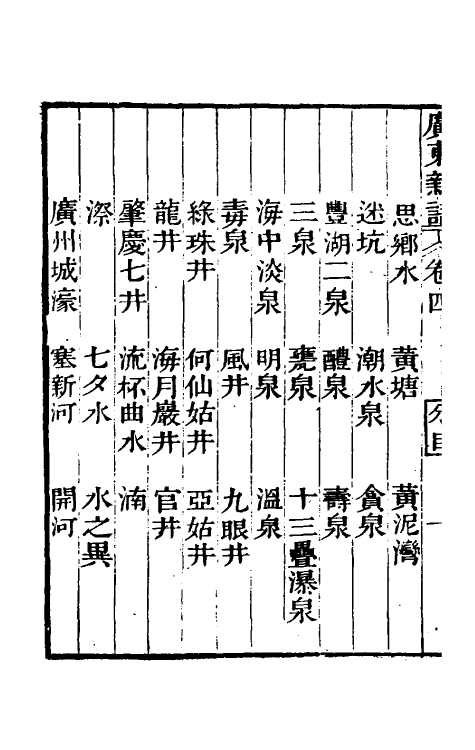 廣東新語 卷四 分目 一
思鄉水 黃塘 黃泥灣
迷坑 潮水泉 貪泉
豐湖二泉 醴泉 壽泉
三泉 甕泉 十三疊瀑泉
海中淡泉 明泉 溫泉
毒泉 風井 九眼井
綠珠井 何仙姑井 亞姑井
龍井 海月巖井 官井
肇慶七井 流杯曲水 湳
漈 七夕水 水之異
廣州城濠 塞新河 開河